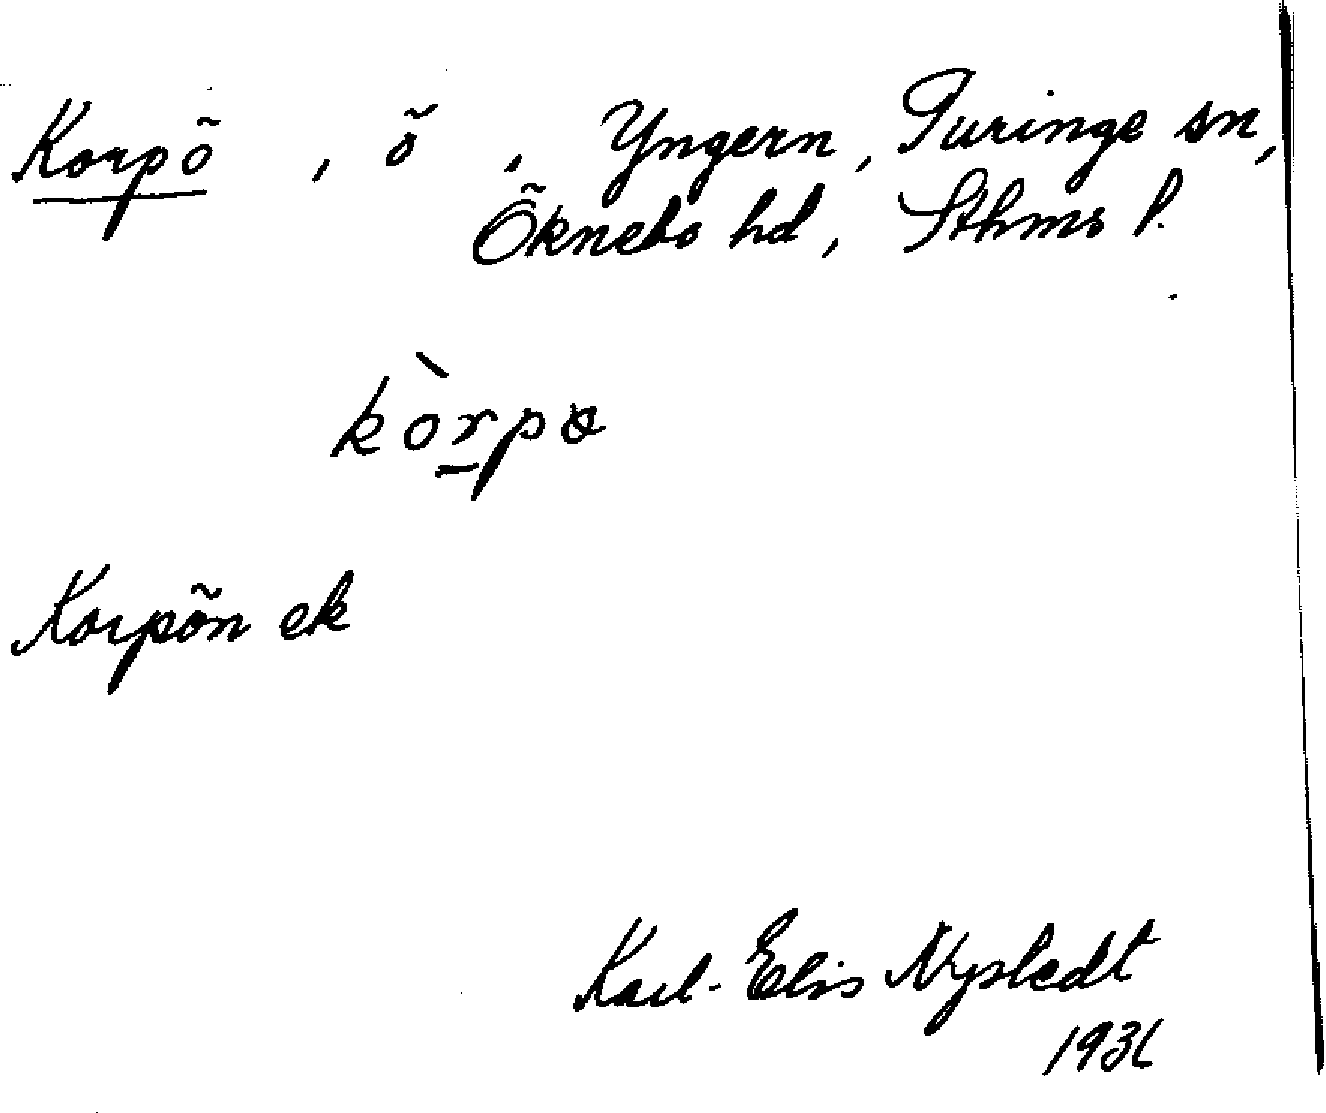 Korpö, ö, Yngern, Turinge sn,
Öknebo hd, Sthms l.
kòrpø
Korpön ek
Karl-Elis Nystedt